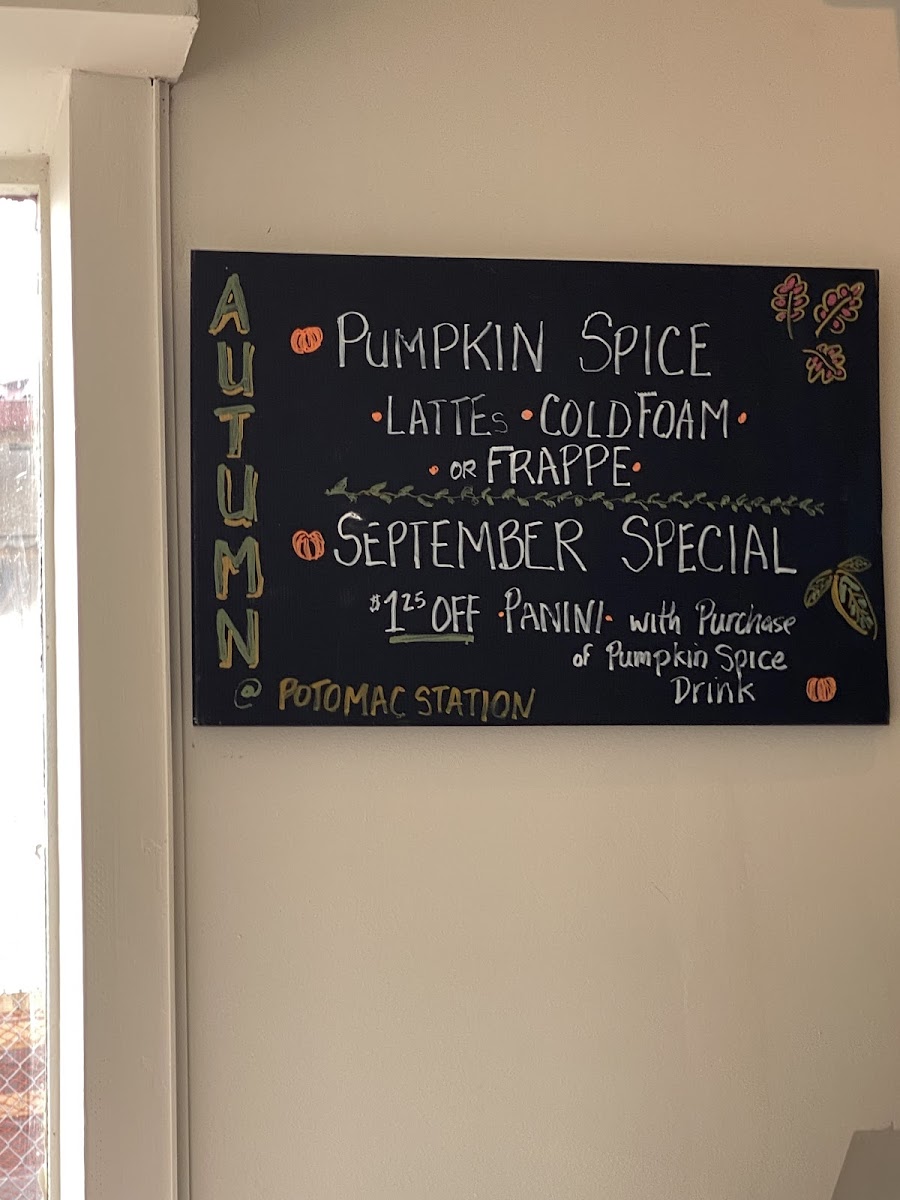 AUTUMN
PUMPKIN SPICE
• LATTEs • COLD FOAM •
• OR FRAPPE •
SEPTEMBER SPECIAL
$1.25 OFF • PANINI • with Purchase
of Pumpkin Spice
Drink
@ POTOMAC STATION